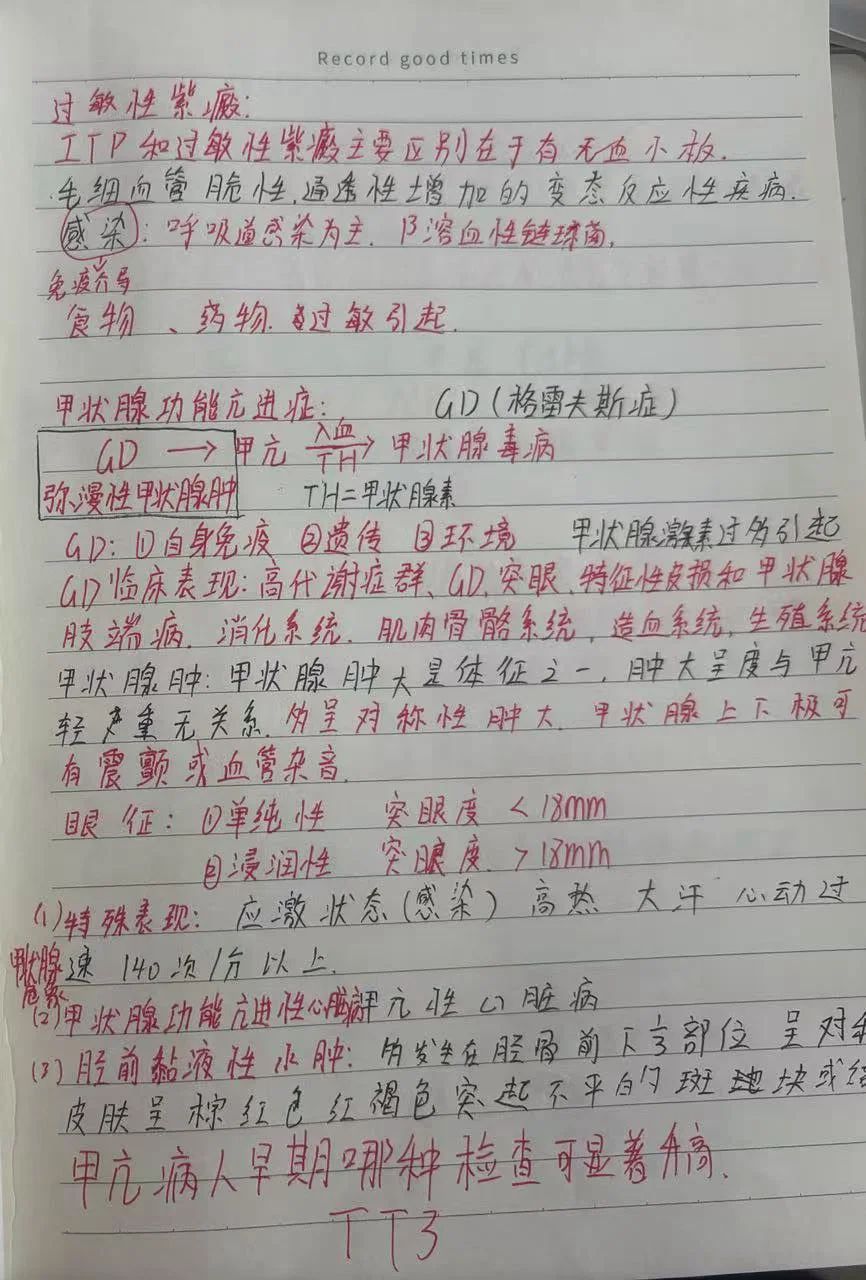 Record good times
过敏性紫癜:
ITP和过敏性紫癜主要区别在于有无血小板.
毛细血管脆性,通透性增加的变态反应性疾病.
感染: 呼吸道感染为主. β溶血性链球菌,
免疫介导
食物、药物. 过敏引起.
甲状腺功能亢进症: GD(格雷夫斯症)
GD → 甲亢 入血 TH → 甲状腺毒病
弥漫性甲状腺肿 TH=甲状腺素
GD: ①自身免疫 ②遗传 ③环境 甲状腺激素过多引起
GD临床表现: 高代谢症群、GD、突眼、特征性皮损和甲状腺
肢端病. 消化系统. 肌肉骨骼系统, 造血系统, 生殖系统
甲状腺肿: 甲状腺肿大是体征之一, 肿大呈度与甲亢
轻重无关系. 多呈对称性肿大. 甲状腺上下极可
有震颤或血管杂音.
眼征: ①单纯性 突眼度 <18mm
②浸润性 突眼度. >18mm
(1)特殊表现: 应激状态(感染) 高热 大汗 心动过
甲状腺危象 速 140次/分以上.
(2)甲状腺功能亢进性心脏病 甲亢性心脏病
(3)胫前黏液性水肿: 多发生在胫骨前下⅓部位 呈对称
皮肤呈棕红色 红褐色突起不平的斑块或结
甲亢病人早期哪种检查可显著升高.
TT3